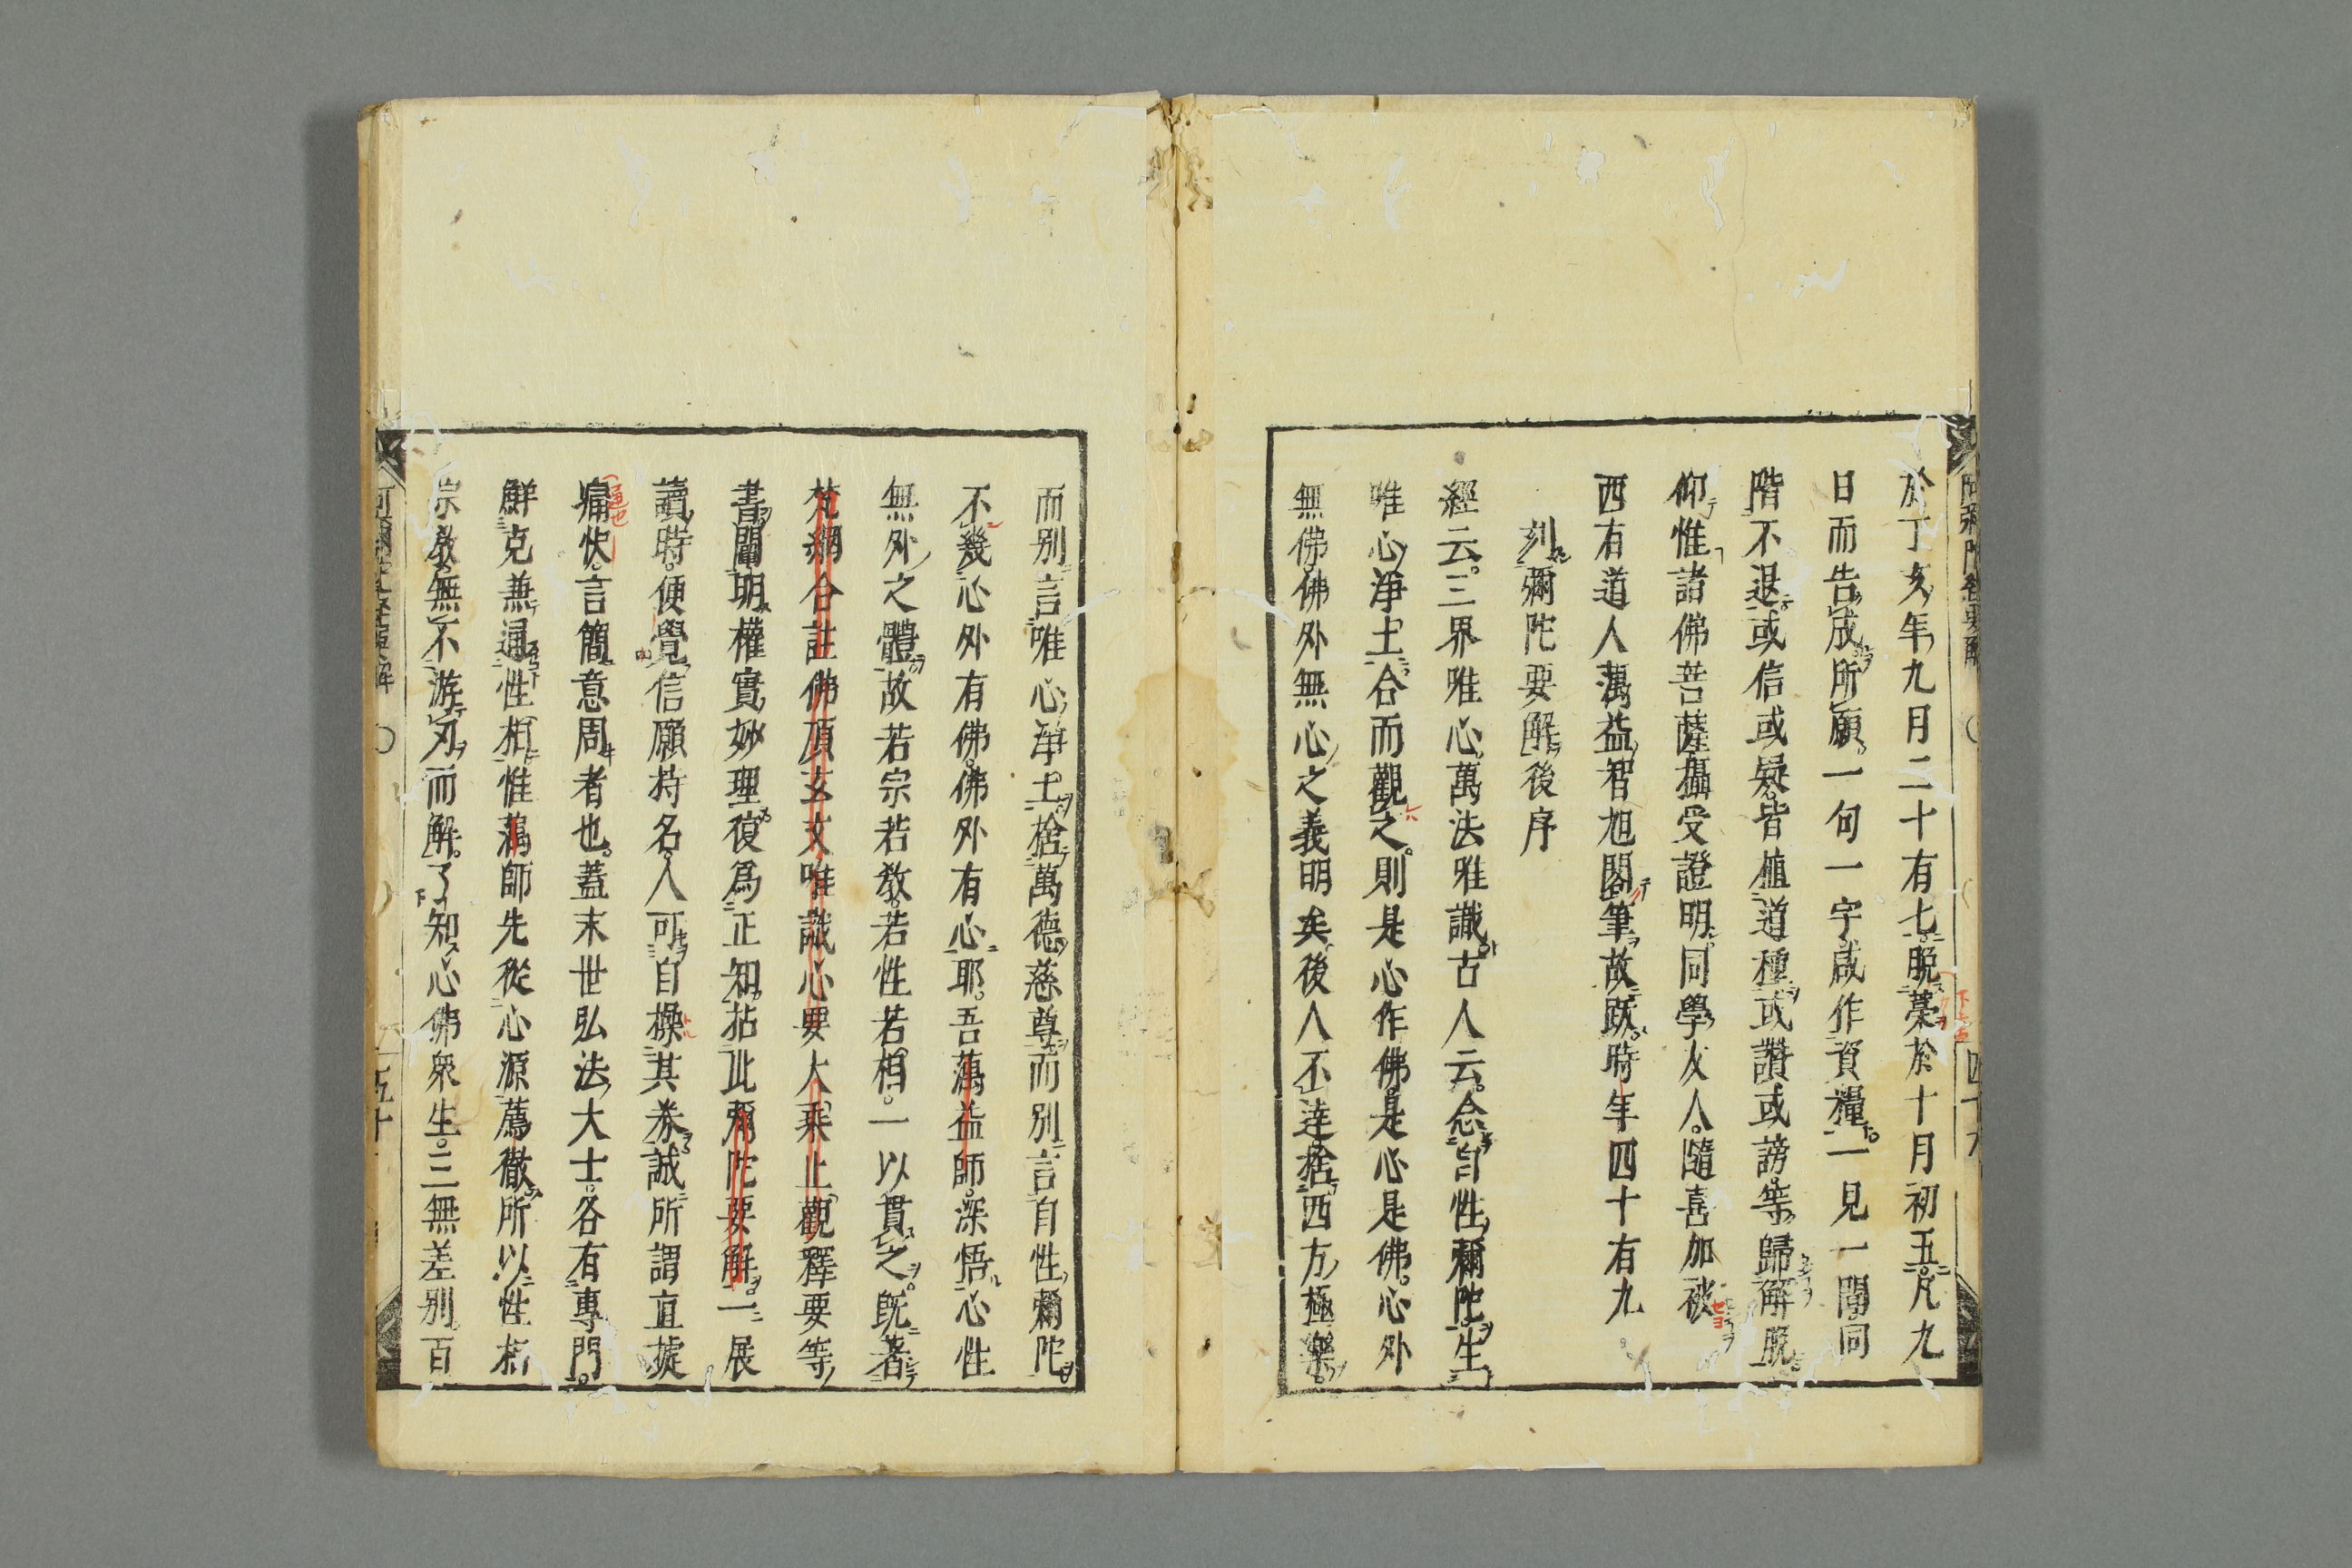 於丁亥年九月二十有七脫藁於十月初五凡九
日而告成所願一句一字咸作資糧一見一聞同
階不退或信或疑皆植道種或讚或謗等歸解脫
仰惟諸佛菩薩攝受證明同學友人隨喜加被
西有道人蕅益智旭閣筆故跋時年四十有九
刻彌陀要解後序
經云三界唯心萬法唯識古人云念自性彌陀生
唯心淨土合而觀之則是心作佛是心是佛心外
無佛佛外無心之義明矣後人不達捨西方極樂
而別言唯心淨土捨萬德慈尊而別言自性彌陀
不幾心外有佛佛外有心耶吾蕅益師深悟心性
無外之體故若宗若教若性若相一以貫之既著
梵網合註佛頂玄文唯識心要大乘止觀釋要等
書闡明權實妙理復爲正知拈此彌陀要解一展
讀時便覺信願持名人可自操其券誠所謂直捷
痛快言簡意周者也蓋末世弘法大士各有專門
鮮克兼通性相惟蕅師先從心源薦徹所以性相
宗教無不游刃而解了知心佛衆生三無差別百